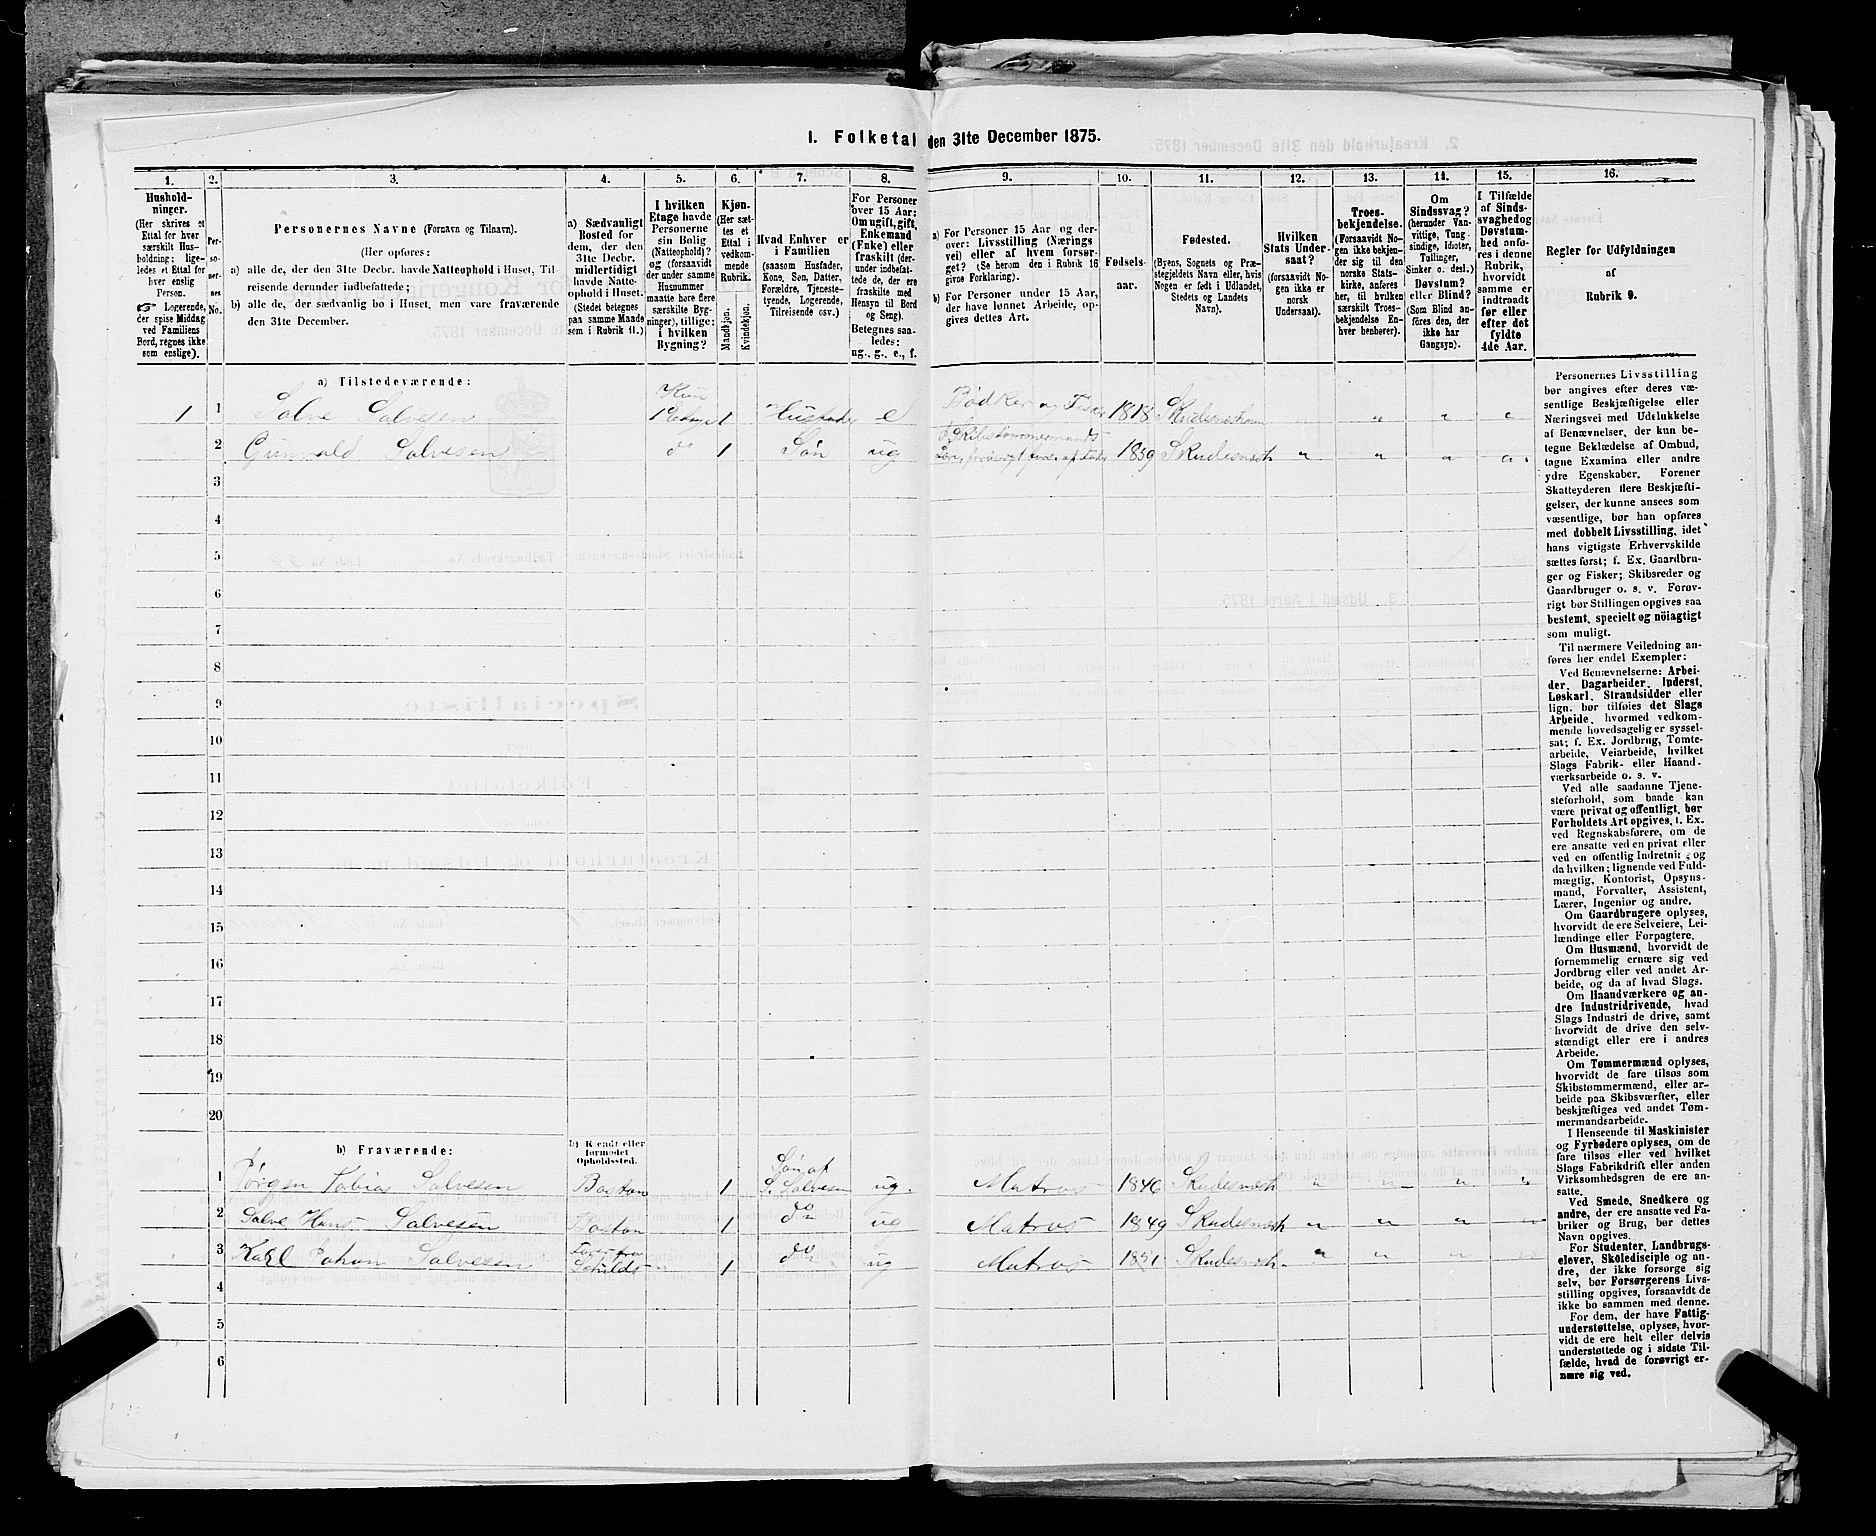 1. Folketal den 31te December 1875.
1. 2. 3. 4. 5. 6. 7. 8. 9. 10. 11. 12. 13. 14. 15. 16.
Hushold-
ninger.
(Her skrives et
Ettal for hver
særskilt Hus-
holdning; lige-
ledes et Ettal for
hver enslig
Person.
☞ Logerende,
der spise Middag
ved Familiens
Bord, regnes ikke
som enslige).
Per-
so-
ner-
nes
No.
Personernes Navne (Fornavn og Tilnavn).
(Her opføres:
a) alle de, der den 31te Decbr. havde Natteophold i Huset, Til-
reisende derunder indbefattede;
b) alle de, der sædvanlig bo i Huset, men vare fraværende
den 31te December.
a) Sædvanligt
Bosted for
dem, der den
31te Decbr.
midlertidigt
havde Natte-
ophold i Huset.
(Stedet betegnes
paa samme Maade
som i Rubrik 11.)
I hvilken
Etage havde
Personerne
sin Bolig
(Natteophold)?
og (forsaavidt
der under samme
Husnummer
maatte høre flere
særskilte Byg-
ninger), tillige:
i hvilken
Bygning?
Kjøn.
(Her sæt-
tes et
Ettal i
vedkom-
mende
Rubrik.
Mandkjøn.
Kvindekjøn.
Hvad Enhver er
i Familien
(saasom Husfader,
Kone, Søn, Datter,
Forældre, Tjeneste-
tyende, Logerende,
Tilreisende osv.)
For Personer
over 15 Aar:
Om ugift, gift,
Enkemand
(Enke) eller
fraskilt (der-
under indbefat-
tede de, der ere
fraskilte med
Hensyn til Bord
og Seng).
Betegnes saa-
ledes:
ug., g., e., f.
a) For Personer 15 Aar og der-
over: Livsstilling (Nærings-
vei) eller af hvem forsør-
get? (Se herom den i Rubrik 16
givne Forklaring).
b) For Personer under 15 Aar,
der have lønnet Arbeide, op-
gives dettes Art.
Fødsels-
aar.
Fødested.
(Byens, Sognets og Præ-
stegjeldets Navn eller, hvis
Nogen er født i Udlandet,
Stedets og Landets
Navn).
Hvilken
Stats Under-
saat?
(forsaavidt No-
gen ikke er
norsk
Undersaat).
Troes-
bekjendelse.
(Forsaavidt No-
gen ikke bekjen-
der sig til den
norske Stats-
kirke, anføres
her, til hvilken
særskilt Troes-
bekjendelse En-
hver henhører).
Om
Sindssvag?
(herunder Van-
vittige, Tung-
sindige, Idioter,
Tullinger,
Sinker o. desl.)
Døvstum?
eller Blind?
(Som Blind an-
føres den, der
ikke har
Gangsyn).
I Tilfælde
af Sinds-
svaghed og
Døvstum-
hed anfø-
res i denne
Rubrik,
hvorvidt
samme er
indtraadt
før eller
efter det
fyldte
4de Aar.
Regler for Udfyldningen
af
Rubrik 9.
a) Tilstedeværende:
1 1 Salve Salvesen Kun 1 Etage 1 Husfader e Bødker og Fisker 1818 Skudesneshavn
2 Gunvald Salvesen do 1 Søn ug Skibstømmermands 1859 Skudesnesh
3
4
5
6
7
8
9
10
11
12
13
14
15
16
17
18
19
20
b) Fraværende:
b) Kjendt eller
formodet
Opholdssted.
1 Jørgen Tobias Salvesen Boston 1 Søn af S. Salvesen ug. Matros 1846 Skudesnesh
2 Salve Hans Salvesen Boston 1 do ug Matros 1849 Skudesnesh
3 Karl Johan Salvesen 1 do ug Matros 1851 Skudesnesh
4
5
6
Personernes Livsstilling
bør angives efter deres væ-
sentlige Beskjæftigelse eller
Næringsvei med Udelukkelse
af Benævnelser, der kun be-
tegne Beklædelse af Ombud,
tagne Examina eller andre
ydre Egenskaber. Forener
Skatteyderen flere Beskjæfti-
gelser, der kunne ansees som
væsentlige, bør han opføres
med dobbelt Livsstilling, idet
hans vigtigste Erhvervskilde
sættes først; f. Ex. Gaardbru-
ger og Fisker; Skibsreder og
Gaardbruger o. s. v. Forøv-
rigt bør Stillingen opgives saa
bestemt, specielt og nöiagtigt
som muligt.
Til nærmere Veiledning an-
føres her endel Exempler:
Ved Benævnelserne: Arbei-
der, Dagarbeider, Inderst,
Løskarl, Strandsidder eller
lign. bør tilføies det Slags
Arbeide, hvormed vedkom-
mende hovedsagelig er syssel-
sat; f. Ex. Jordbrug, Tomte-
arbeide, Veiarbeide, hvilket
Slags Fabrik- eller Haand-
værksarbeide o. s. v.
Ved alle saadanne Tjene-
steforhold, som baade kan
være privat og offentligt, bør
Forholdets Art opgives, f. Ex.
ved Regnskabsførere, om de
ere ansatte ved en privat eller
ved en offentlig Indretning og
da hvilken; lignende ved Fuld-
mægtig, Kontorist, Opsyns-
mand, Forvalter, Assistent,
Lærer, Ingeniør og andre.
Om Gaardbrugere oplyses,
hvorvidt de ere Selveiere, Lei-
lændinge eller Forpagtere.
Om Husmænd, hvorvidt de
fornemmelig ernære sig ved
Jordbrug eller ved andet Ar-
beide, og da af hvad Slags.
Om Haandværkere og an-
dre Industridrivende, hvad
Slags Industri de drive, samt
hvorvidt de drive den selv-
stændigt eller ere i andres
Arbeide.
Om Tømmermænd oplyses,
hvorvidt de fare tilsøs som
Skibstømmermænd, eller ar-
beide paa Skibsværfter, eller
beskjæftiges ved andet Tøm-
mermandsarbeide.
I Henseende til Maskinister
og Fyrbødere oplyses, om de
fare tilsøs eller ved hvilket
Slags Fabrikdrift eller anden
Virksomhedsgren de ere an-
satte.
Ved Smede, Snedkere og
andre, der ere ansatte ved Fa-
briker og Brug, bør dettes
Navn opgives.
For Studenter, Landbrugs-
elever, Skoledisciple og an-
dre, der ikke forsørge sig
selv, bør Forsørgerens Livs-
stilling opgives, forsaavidt de
ikke bo sammen med denne.
For dem, der have Fattig-
understøttelse, oplyses, hvor-
vidt de ere helt eller delvis
understøttede og i sidste Til-
fælde, hvad de forøvrigt er-
nære sig ved.